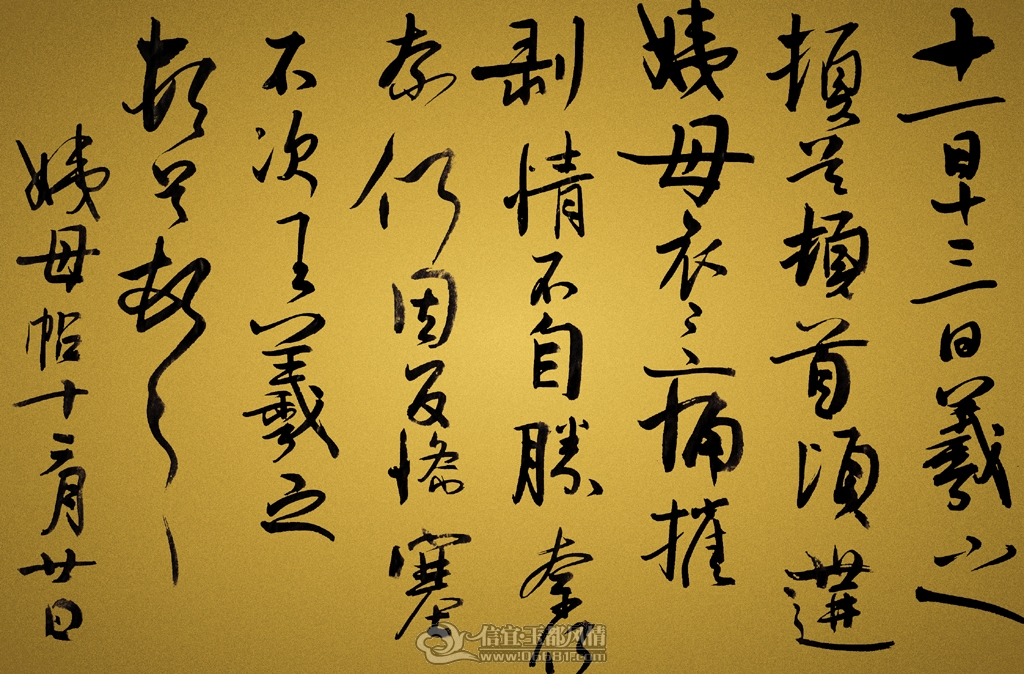 十一月十三日羲之
頓首頓首頃遘
姨母哀哀痛摧
剝情不自勝奈何
奈何因反慘塞
不次王羲之
頓首頓首
姨母帖十二月廿日
信宜·玉都风情
www.06681.com